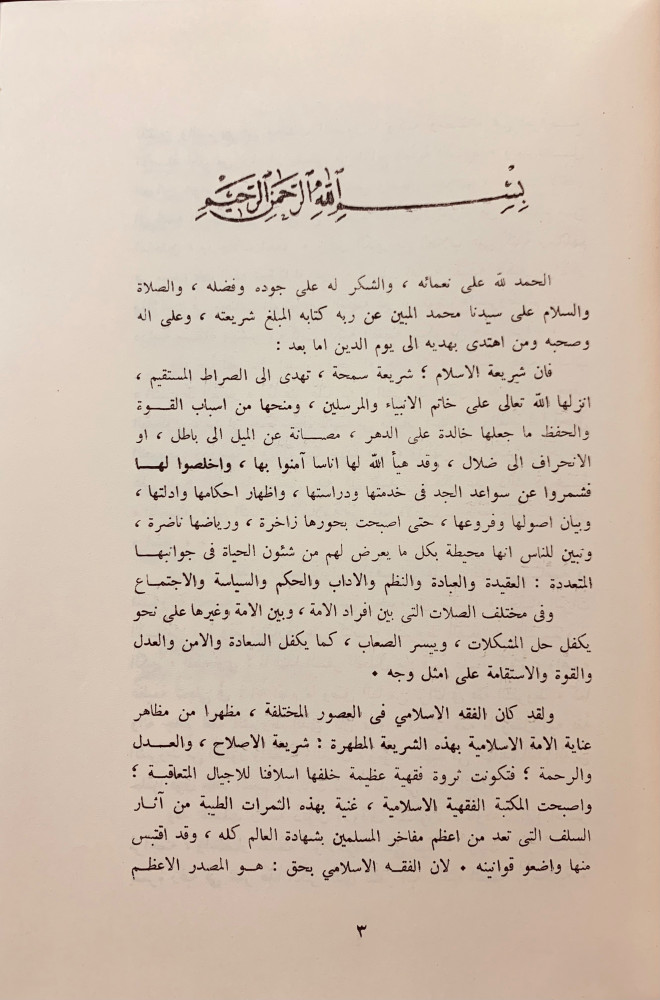 بسم الله الرحمن الرحيم
الحمد لله على نعمائه ، والشكر له على جوده وفضله ، والصلاة
والسلام على سيدنا محمد المبين عن ربه كتابه المبلغ شريعته ، وعلى اله
وصحبه ومن اهتدى بهديه الى يوم الدين اما بعد :
فان شريعة الاسلام ؛ شريعة سمحة ، تهدى الى الصراط المستقيم ،
انزلها الله تعالى على خاتم الانبياء والمرسلين ، ومنحها من اسباب القوة
والحفظ ما جعلها خالدة على الدهر ، مصانة عن الميل الى باطل ، او
الانحراف الى ضلال ، وقد هيأ الله لها اناسا آمنوا بها ، واخلصوا لها
فشمروا عن سواعد الجد فى خدمتها ودراستها ، واظهار احكامها وادلتها ،
وبيان اصولها وفروعها ، حتى اصبحت بحورها زاخرة ، ورياضها ناضرة ،
وتبين للناس انها محيطة بكل ما يعرض لهم من شئون الحياة فى جوانبها
المتعددة : العقيدة والعبادة والنظم والاداب والحكم والسياسة والاجتماع
وفى مختلف الصلات التى بين افراد الامة ، وبين الامة وغيرها على نحو
يكفل حل المشكلات ، وييسر الصعاب ، كما يكفل السعادة والامن والعدل
والقوة والاستقامة على امثل وجه ٠
ولقد كان الفقه الاسلامي فى العصور المختلفة ، مظهرا من مظاهر
عناية الامة الاسلامية بهذه الشريعة المطهرة : شريعة الاصلاح ، والعدل
والرحمة ؛ فتكونت ثروة فقهية عظيمة خلفها اسلافنا للاجيال المتعاقبة ؛
واصبحت المكتبة الفقهية الاسلامية ، غنية بهذه الثمرات الطيبة من آثار
السلف التى تعد من اعظم مفاخر المسلمين بشهادة العالم كله ، وقد اقتبس
منها واضعو قوانينه ٠ لان الفقه الاسلامي بحق : هو المصدر الاعظم
٣